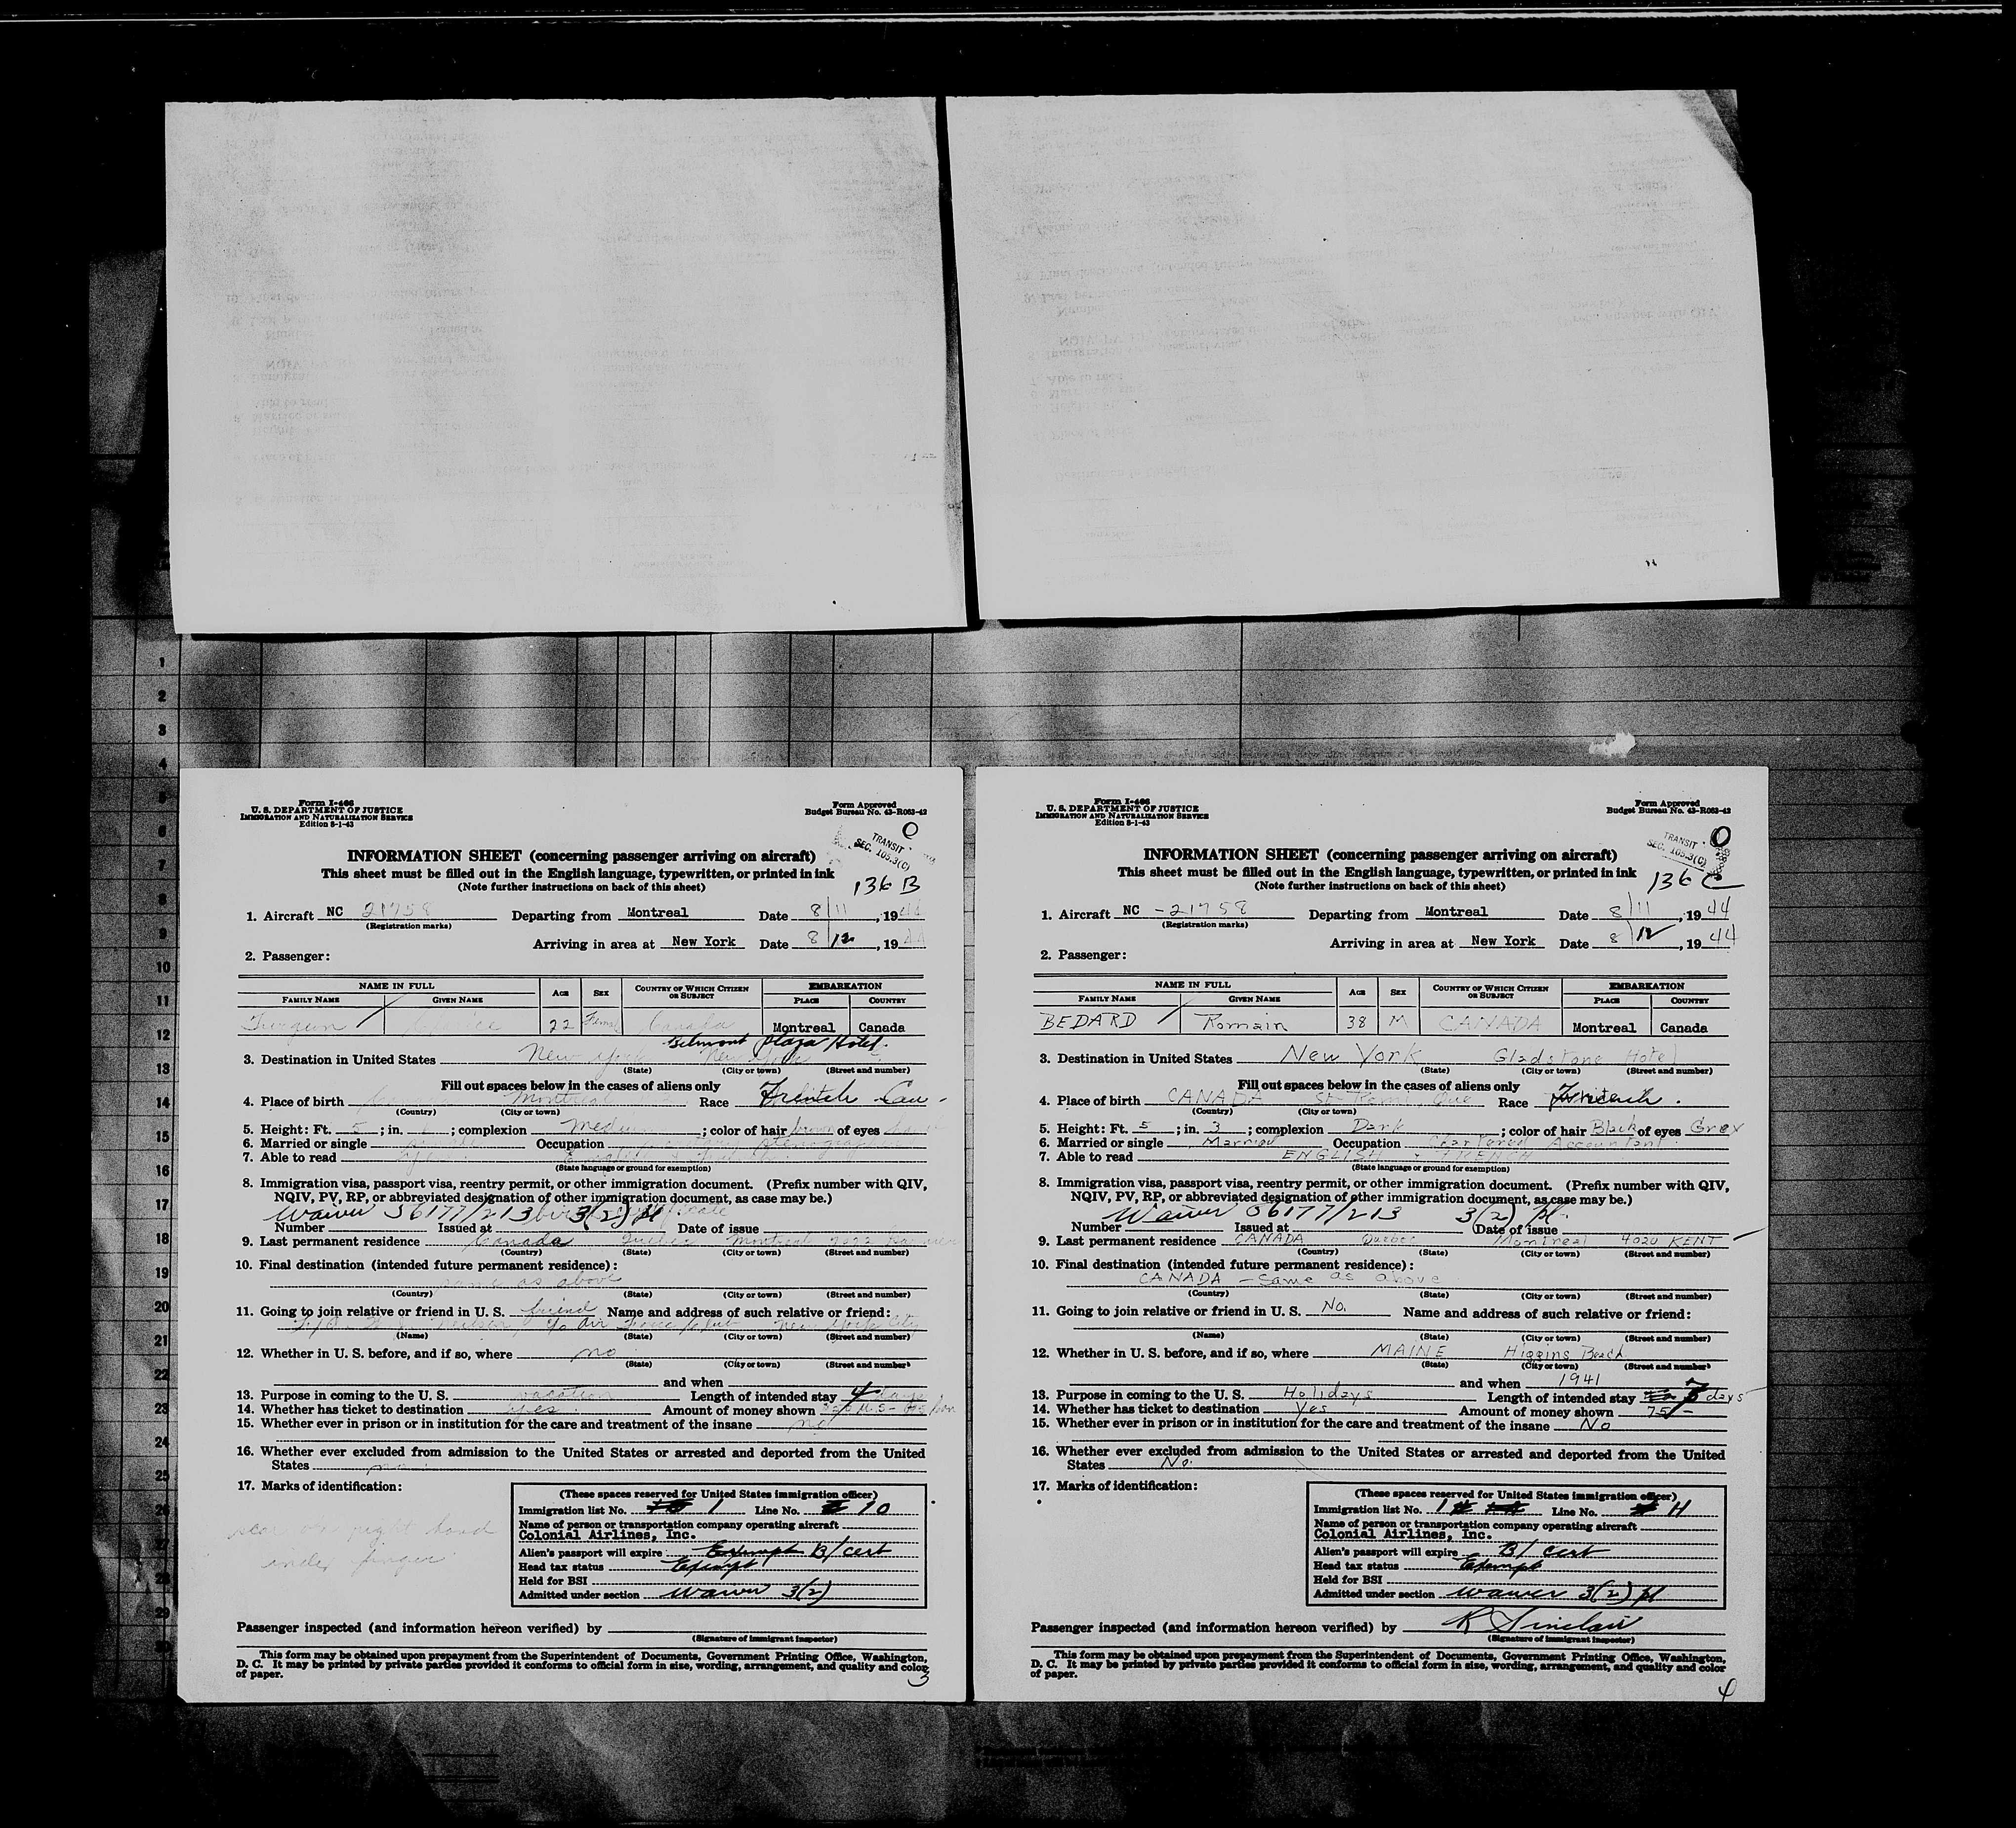 1
2
3
4
5
6
7
8
9
10
11
12
13
14
15
16
17
18
19
20
21
22
23
24
25
26
27
28
29
Form I-466
U. S. DEPARTMENT OF JUSTICE
IMMIGRATION AND NATURALIZATION SERVICE
Edition 8-1-43
Form Approved
Budget Bureau No. 43-R063-42
O
TRANSIT
SEC. 105.3(C)
INFORMATION SHEET (concerning passenger arriving on aircraft)
This sheet must be filled out in the English language, typewritten, or printed in ink
(Note further instructions on back of this sheet)
136 B
1. Aircraft NC 21758 Departing from Montreal Date 8/11, 1944
(Registration marks)
Arriving in area at New York Date 8/12, 1944
2. Passenger:
NAME IN FULL AGE SEX COUNTRY OF WHICH CITIZEN OR SUBJECT EMBARKATION
FAMILY NAME GIVEN NAME PLACE COUNTRY
Turgeon 22 Canada Montreal Canada
Belmont Plaza Hotel.
3. Destination in United States New York New York
(State) (City or town) (Street and number)
Fill out spaces below in the cases of aliens only
4. Place of birth Montreal Race French Can-
(Country) (City or town)
5. Height: Ft. 5; in. ; complexion Medium; color of hair brown of eyes
6. Married or single single Occupation stenographer
7. Able to read yes
(State language or ground for exemption)
8. Immigration visa, passport visa, reentry permit, or other immigration document. (Prefix number with QIV,
NQIV, PV, RP, or abbreviated designation of other immigration document, as case may be.)
Waiver 56177/213 3(2) pl
Number Issued at Date of issue
9. Last permanent residence Canada Quebec Montreal
(Country) (State) (City or town) (Street and number)
10. Final destination (intended future permanent residence):
same as above
(Country) (State) (City or town) (Street and number)
11. Going to join relative or friend in U. S. friend Name and address of such relative or friend:
c/o Air Force Club New York City
(Name) (State) (City or town) (Street and number)
12. Whether in U. S. before, and if so, where no
(State) (City or town) (Street and number)
and when
13. Purpose in coming to the U. S. vacation Length of intended stay 4 days
14. Whether has ticket to destination yes. Amount of money shown
15. Whether ever in prison or in institution for the care and treatment of the insane no
16. Whether ever excluded from admission to the United States or arrested and deported from the United
States no
17. Marks of identification:
scar on right hand
index finger
(These spaces reserved for United States immigration officer)
Immigration list No. 1 Line No. 10
Name of person or transportation company operating aircraft
Colonial Airlines, Inc.
Alien's passport will expire Exempt B/cert
Head tax status Exempt
Held for BSI
Admitted under section Waiver 3(2)
Passenger inspected (and information hereon verified) by
(Signature of Immigrant Inspector)
This form may be obtained upon prepayment from the Superintendent of Documents, Government Printing Office, Washington,
D. C. It may be printed by private parties provided it conforms to official form in size, wording, arrangement, and quality and color
of paper.
3
Form I-466
U. S. DEPARTMENT OF JUSTICE
IMMIGRATION AND NATURALIZATION SERVICE
Edition 8-1-43
Form Approved
Budget Bureau No. 43-R063-42
O
TRANSIT
SEC. 105.3(C)
INFORMATION SHEET (concerning passenger arriving on aircraft)
This sheet must be filled out in the English language, typewritten, or printed in ink
(Note further instructions on back of this sheet)
136 C
1. Aircraft NC -21758 Departing from Montreal Date 8/11, 1944
(Registration marks)
Arriving in area at New York Date 8/12, 1944
2. Passenger:
NAME IN FULL AGE SEX COUNTRY OF WHICH CITIZEN OR SUBJECT EMBARKATION
FAMILY NAME GIVEN NAME PLACE COUNTRY
BEDARD Romain 38 M CANADA Montreal Canada
3. Destination in United States New York Gladstone Hotel
(State) (City or town) (Street and number)
Fill out spaces below in the cases of aliens only
4. Place of birth CANADA St-Remi, Que Race French.
(Country) (City or town)
5. Height: Ft. 5; in. 3; complexion Dark; color of hair Black of eyes Grey
6. Married or single Married Occupation Chartered Accountant
7. Able to read ENGLISH FRENCH
(State language or ground for exemption)
8. Immigration visa, passport visa, reentry permit, or other immigration document. (Prefix number with QIV,
NQIV, PV, RP, or abbreviated designation of other immigration document, as case may be.)
Waiver 56177/213 3(2) pl.
Number Issued at Date of issue
9. Last permanent residence CANADA Quebec Montreal 4020 KENT
(Country) (State) (City or town) (Street and number)
10. Final destination (intended future permanent residence):
CANADA - Same as above
(Country) (State) (City or town) (Street and number)
11. Going to join relative or friend in U. S. No. Name and address of such relative or friend:
(Name) (State) (City or town) (Street and number)
12. Whether in U. S. before, and if so, where MAINE Higgins Beach
(State) (City or town) (Street and number)
and when 1941
13. Purpose in coming to the U. S. Holidays Length of intended stay 7 days
14. Whether has ticket to destination Yes Amount of money shown 75/-
15. Whether ever in prison or in institution for the care and treatment of the insane No
16. Whether ever excluded from admission to the United States or arrested and deported from the United
States No.
17. Marks of identification:
(These spaces reserved for United States immigration officer)
Immigration list No. 1 Line No. 11
Name of person or transportation company operating aircraft
Colonial Airlines, Inc.
Alien's passport will expire B/ cert
Head tax status Exempt
Held for BSI
Admitted under section Waiver 3(2) pl
Passenger inspected (and information hereon verified) by R Sinclair
(Signature of Immigrant Inspector)
This form may be obtained upon prepayment from the Superintendent of Documents, Government Printing Office, Washington,
D. C. It may be printed by private parties provided it conforms to official form in size, wording, arrangement, and quality and color
of paper.
4